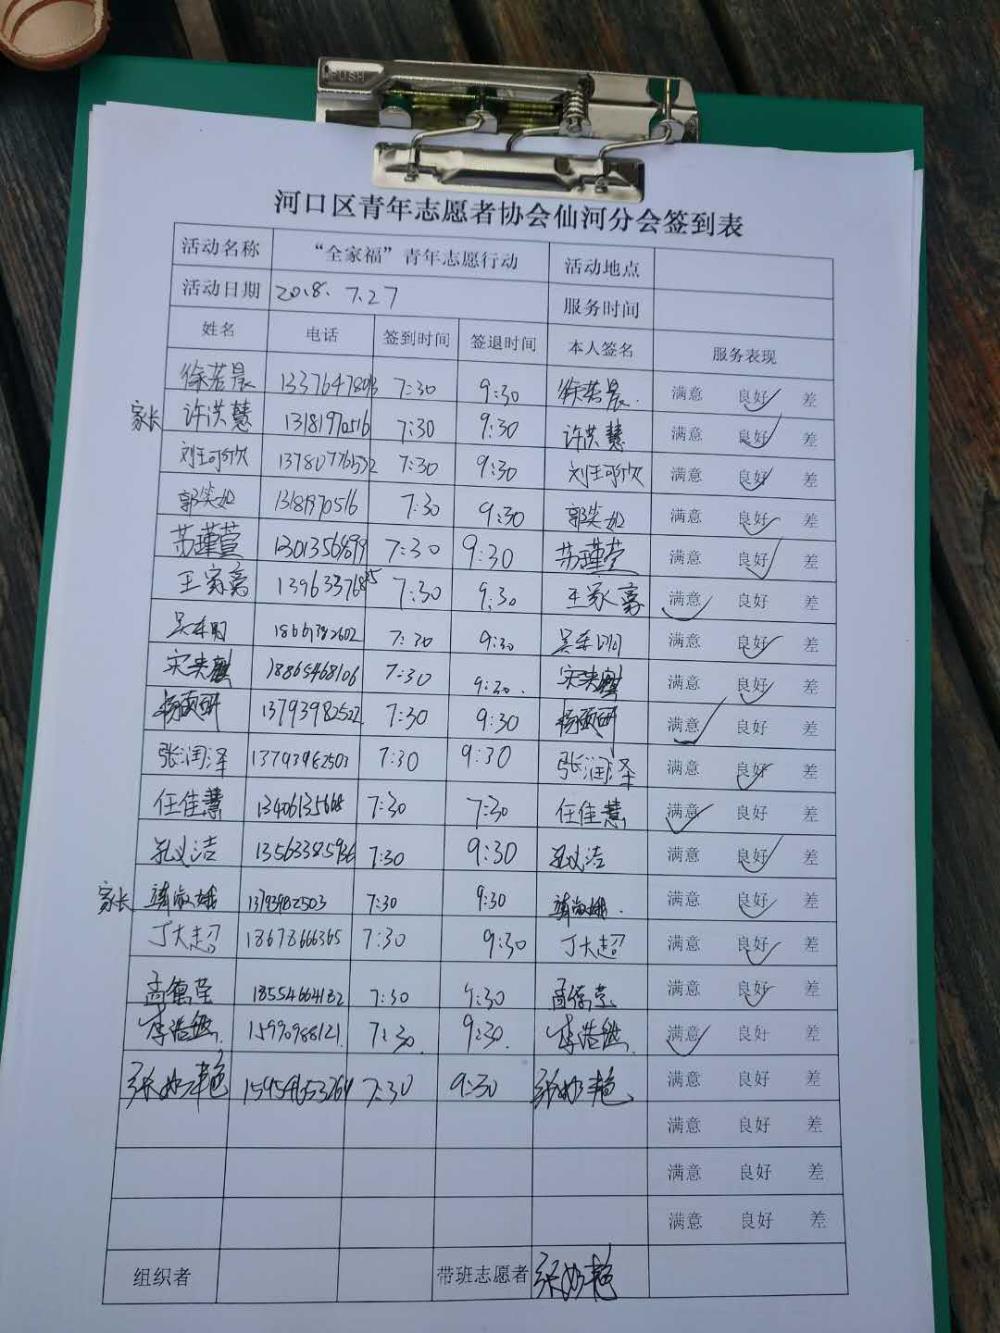 PUSH
河口区青年志愿者协会仙河分会签到表
活动名称 “全家福”青年志愿行动 活动地点
活动日期 2018.7.27 服务时间
姓名 电话 签到时间 签退时间 本人签名 服务表现
徐若晨 7:30 9:30 徐若晨. 满意 良好 差
家长 许洪慧 13181970516 7:30 9:30 许洪慧 满意 良好 差
刘王可欣 7:30 9:30 刘王可欣 满意 良好 差
郭奕如 13181970516 7:30 9:30 郭奕如 满意 良好 差
苏瑾萱 7:30 9:30 苏瑾萱 满意 良好 差
王家豪 7:30 9:30 王家豪 满意 良好 差
7:30 9:30 满意 良好 差
宋来麒 18865468106 7:30 9:30. 宋来麒 满意 良好 差
杨硕研 13793982522 7:30 9:30 杨硕研 满意 良好 差
张润泽 13793982503 7:30 9:30 张润泽 满意 良好 差
任佳慧 13406135668 7:30 7:30 任佳慧 满意 良好 差
孔义洁 7:30 9:30 孔义洁 满意 良好 差
家长 13793982503 7:30 9:30 满意 良好 差
丁大超 18678666365 7:30 9:30 丁大超 满意 良好 差
高德莹 18554664182 7:30 9:30 满意 良好 差
李浩 7:30. 9:30. 李浩 满意 良好 差
张 艳 7:30 9:30 张 艳 满意 良好 差
满意 良好 差
满意 良好 差
满意 良好 差
组织者 带班志愿者 张 艳